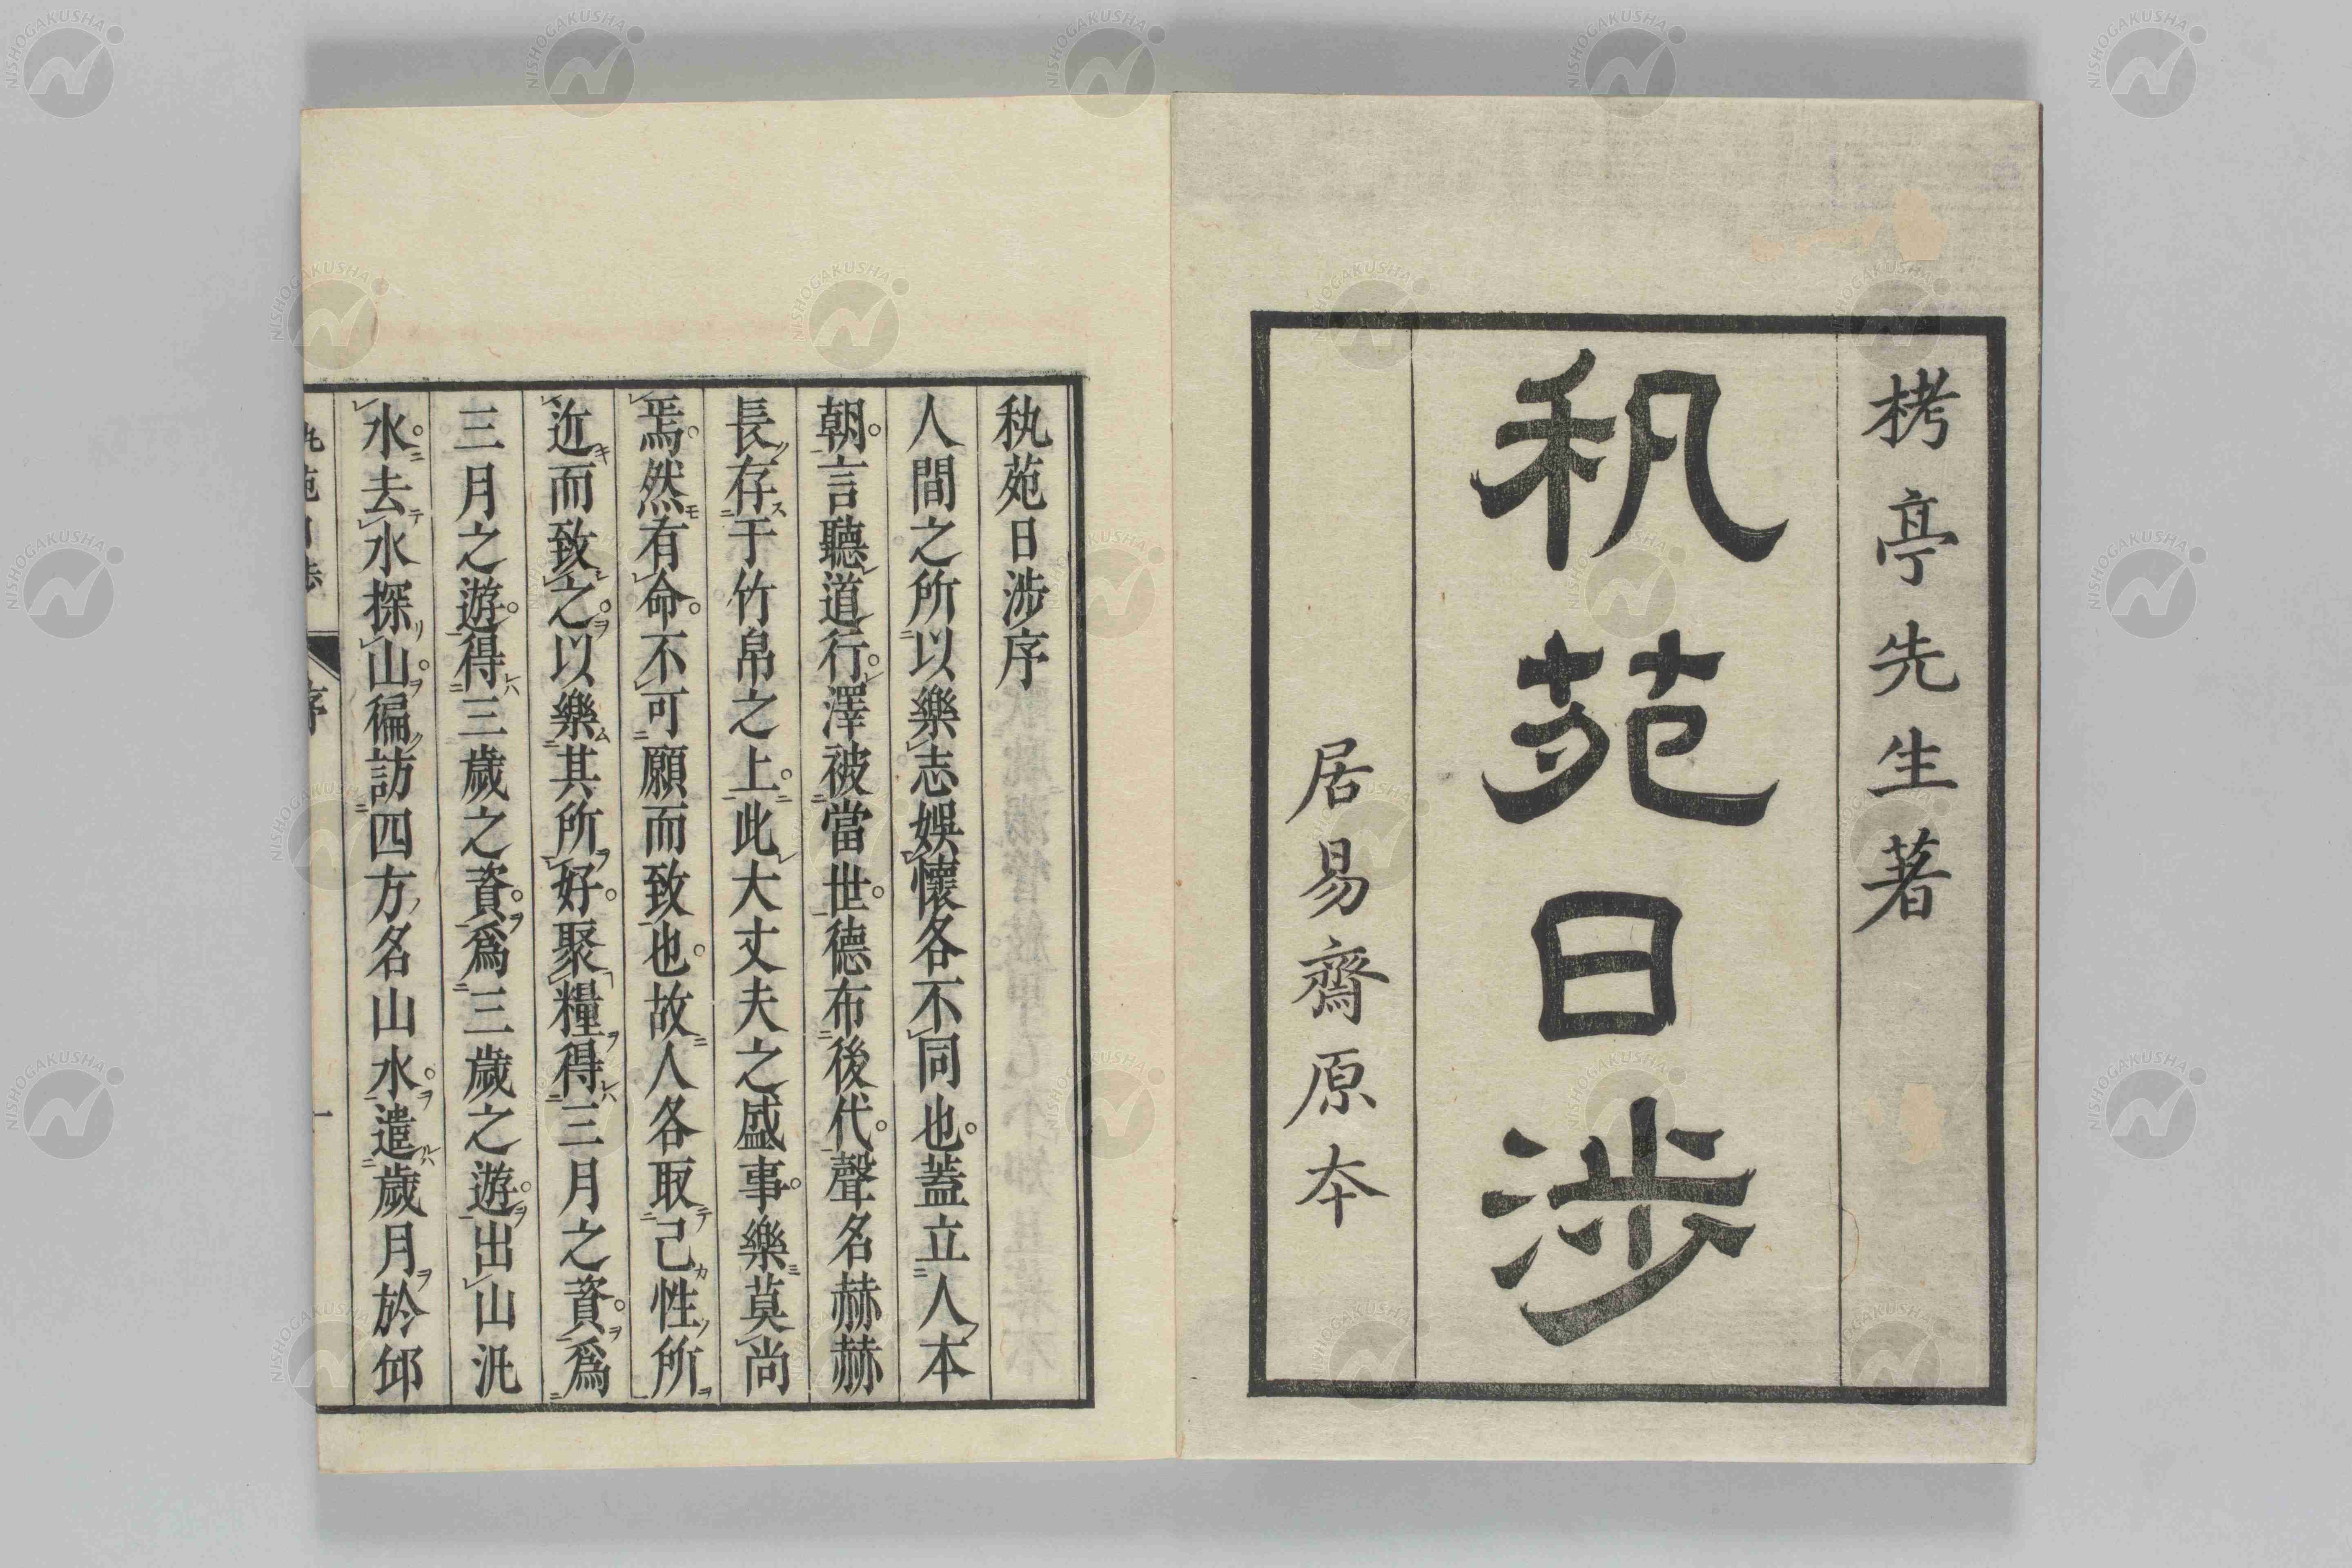 栲亭先生著
秇苑日渉
居易齋原本
秇苑日渉序
人間之所以樂志娯懷各不同也蓋立人本
朝言聽道行澤被當世德布後代聲名赫赫
長存于竹帛之上此大丈夫之盛事樂莫尚
焉然有命不可願而致也故人各取己性所
近而致之以樂其所好聚糧得三月之資爲
三月之遊得三歲之資爲三歲之遊出山汎
水去水探山徧訪四方名山水遣歲月於邱
序
NISHOGAKUSHA